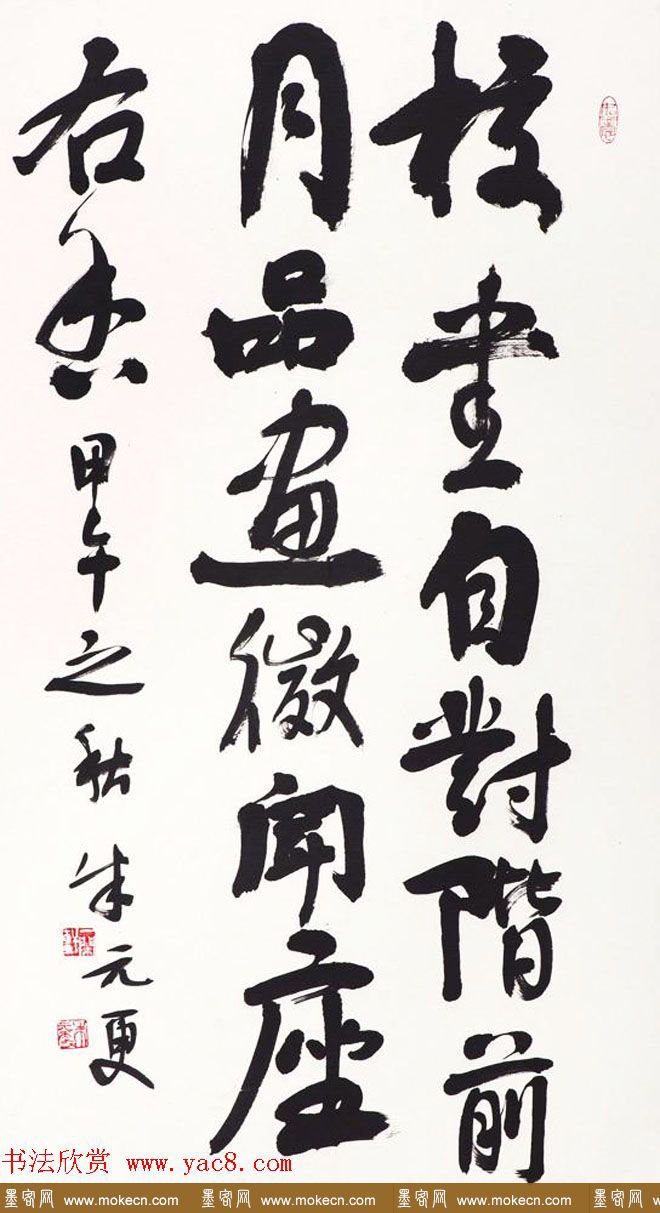 校書自對階前
月品畫微聞座
右香甲午之秋朱元更
书法欣赏 www.yac8.com
墨客网 www.mokecn.com 墨客网 www.mokecn.com 墨客网 www.mokecn.com 墨客网 www